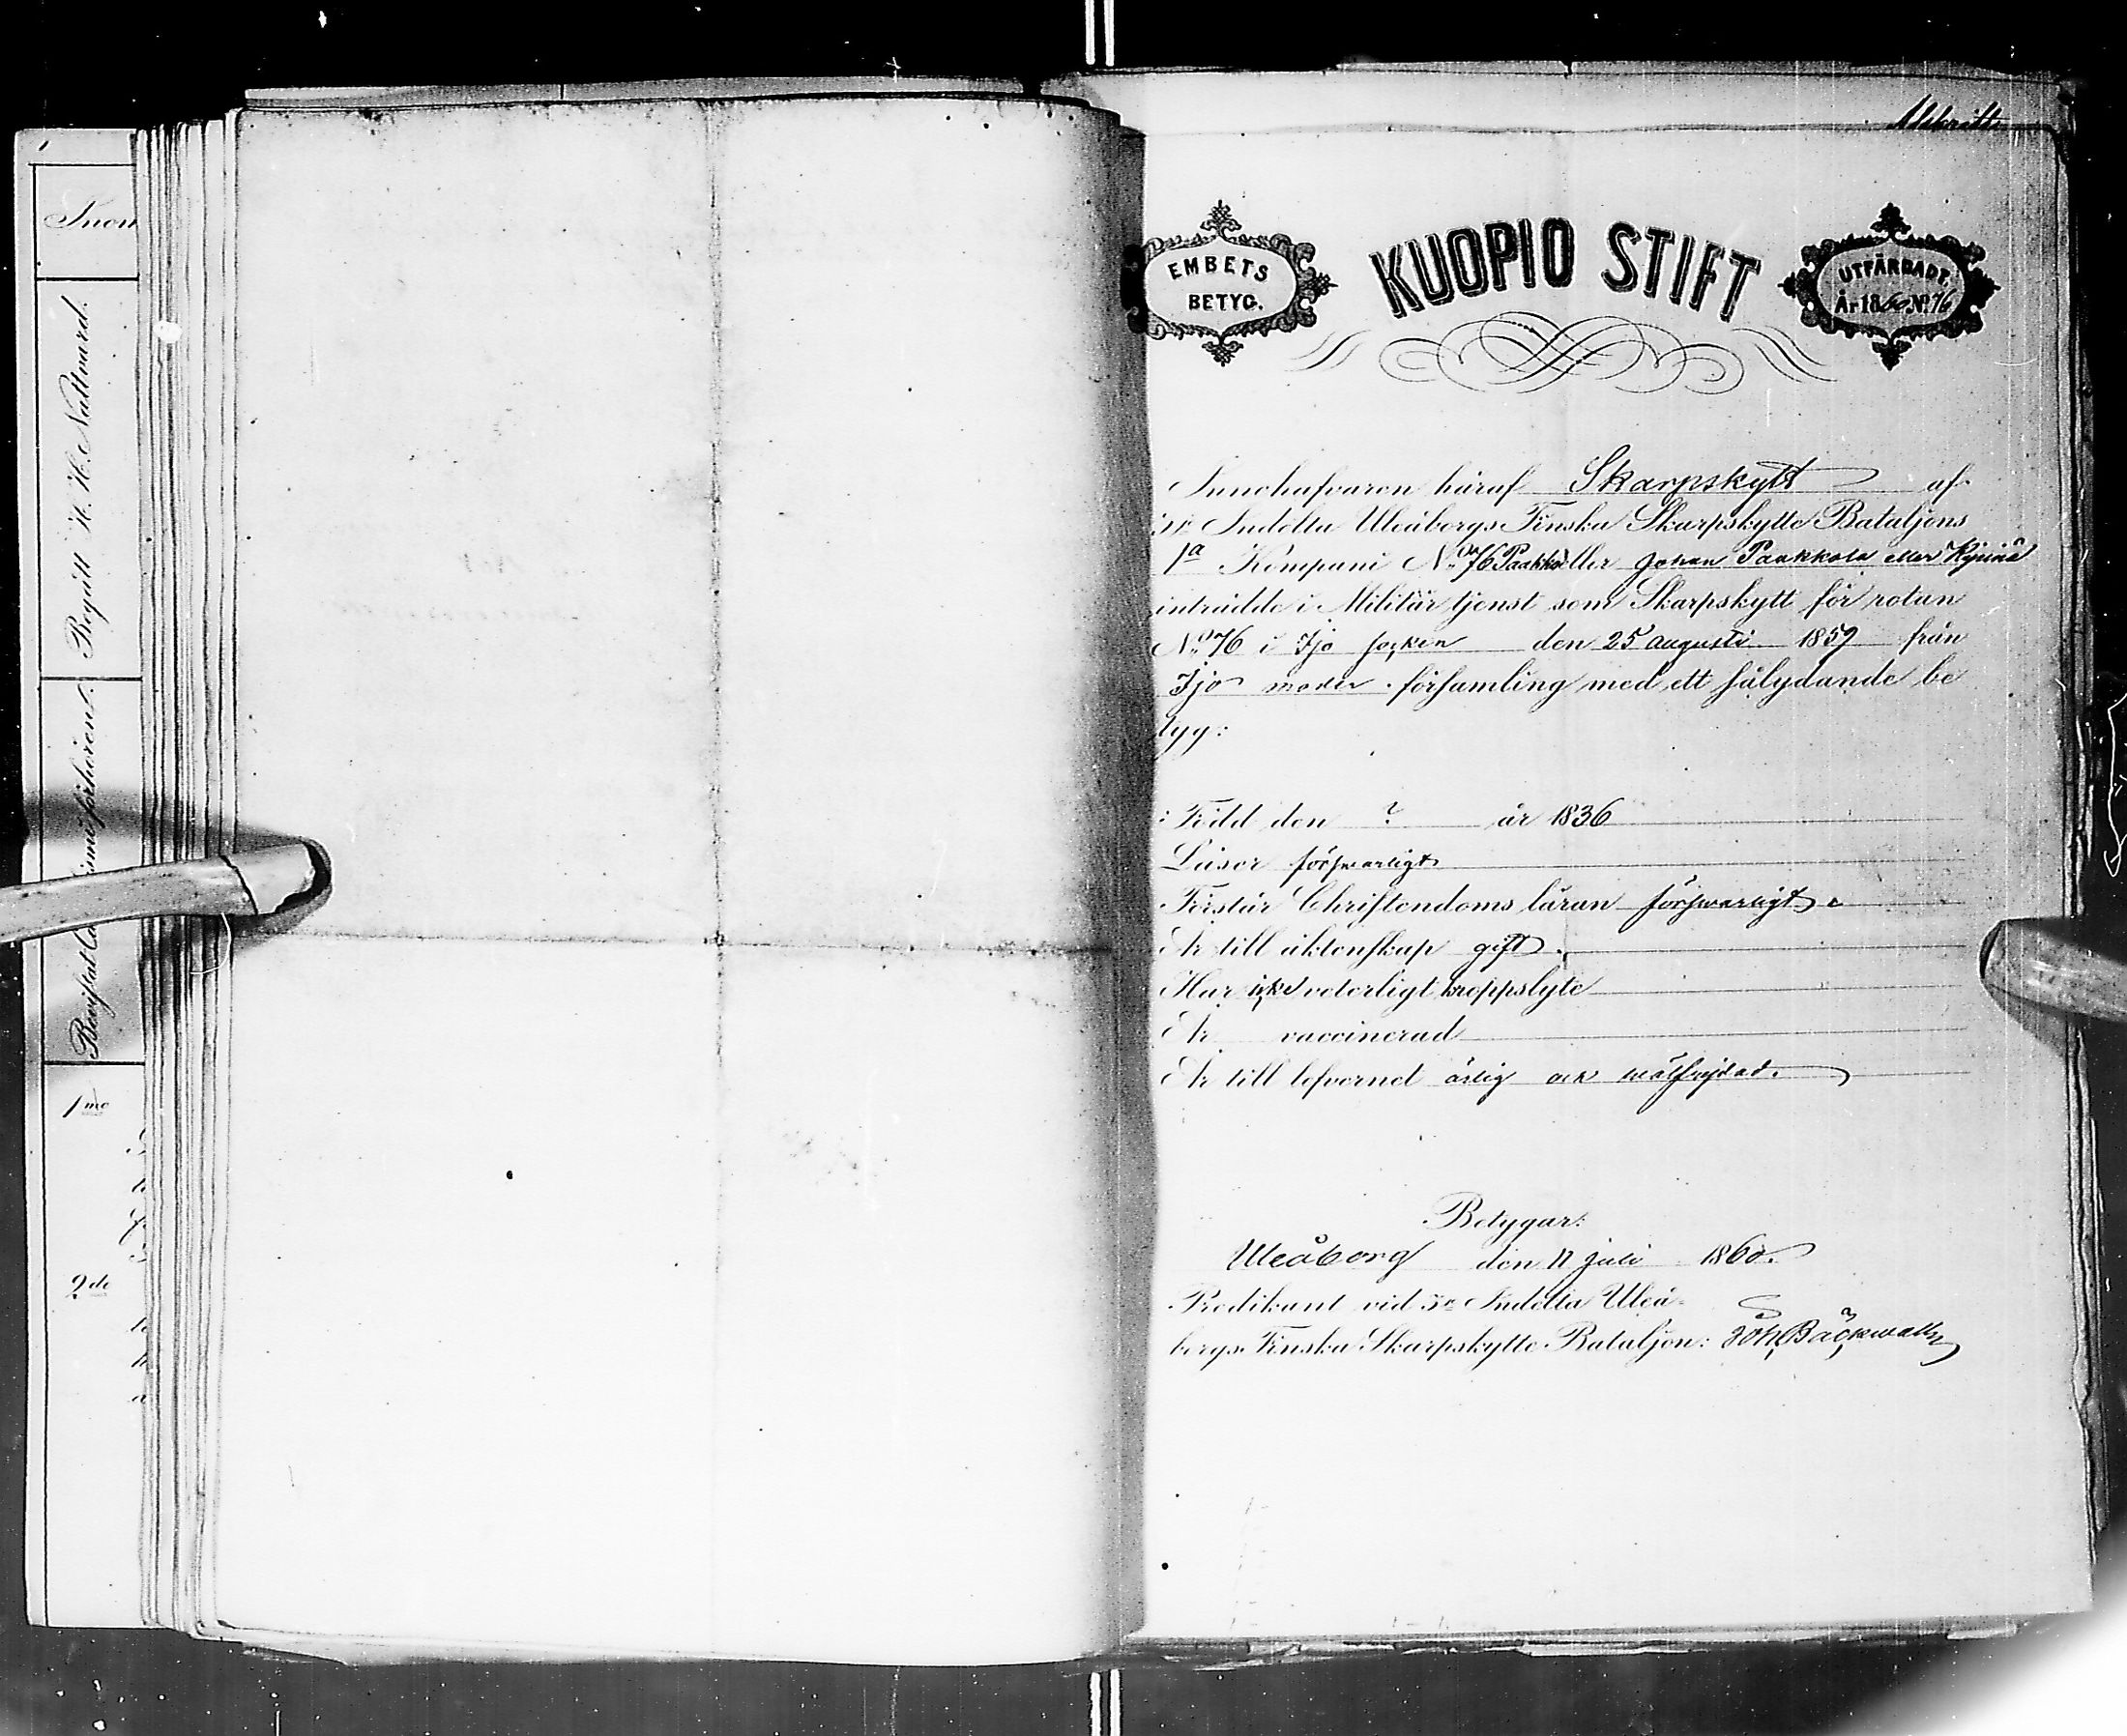 Begått H. H. Nattvard.
1mo
2do
EMBETS
BETYG.
KUOPIO STIFT
UTFÄRDADT.
År 1860 No 76
Innehafvaren häraf Skarpskytt af
Indelta Uleåborgs Finska Skarpskytte Bataljons
1a Kompani No 76 Paakkola eller Johan Paakkola eller
inträdde i Militär tjenst som Skarpskytt för rotan
No 76 i Ijo socken den 25 augusti 1859 från
Ijo moder församling med ett sålydande be
tyg:
Född den ? år 1836
Läser försvarligt
Förstår Christendoms läran försvarligt.
Är till äktenskap gift.
Har icke veterligt kroppslyte
Är vaccinerad
Är till lefvernet ärlig och wälfrejdad.
Betygar:
Uleåborg den 11 juli 1860.
Predikant vid Indelta Uleå-
borgs Finska Skarpskytte Bataljon: Joh. Bäckwall